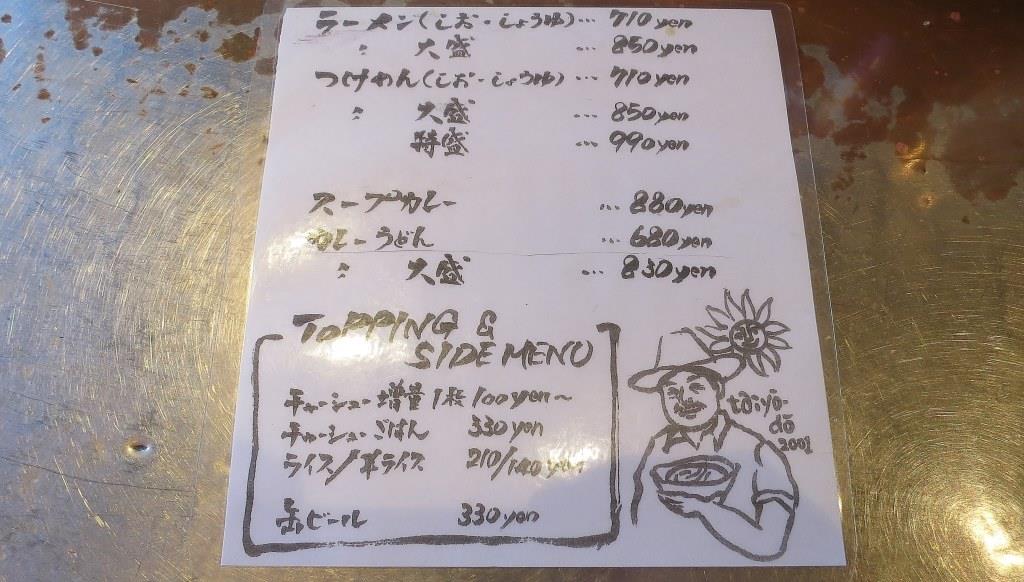 ラーメン(しお・しょうゆ)… 710yen
〃 大盛 … 850yen
つけめん(しお・しょうゆ)… 710yen
〃 大盛 … 850yen
特盛 … 990yen
スープカレー … 880yen
カレーうどん … 680yen
〃 大盛 … 830yen
TOPPING &
SIDE MENU
チャーシュー増量1枚 100yen～
チャーシューごはん 330yen
ライス/半ライス 210/140yen
缶ビール 330yen
taiyo-
do
2001